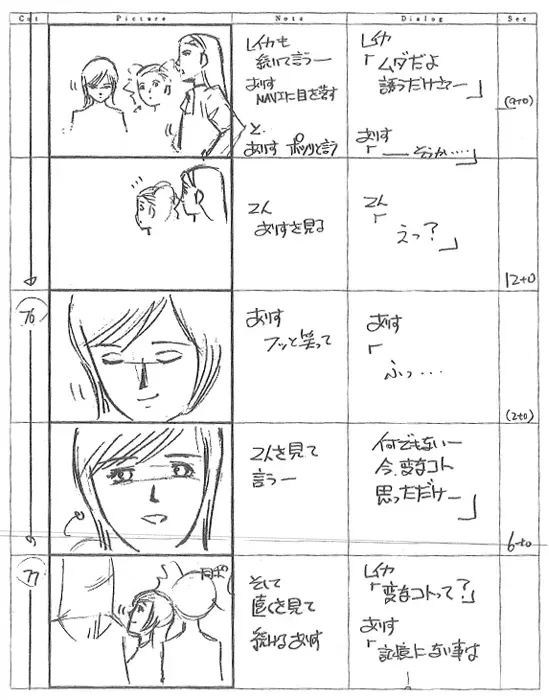 Cut Picture Note Dialog Sec
レイカも
続いて言う—
ありす
NAVIに目を落す
と…
ありす ポツリと言う
レイカ
「ムダだよ
誘うだけさ—」
ありす
「——そうか……」
(9+0)
2人
ありすを見る
2人
「えっ?」
12+0
76
ありす
フッと笑って
ありす
「ふっ…
(2+0)
2人を見て
言う—
何でもない—
今、変なコト
思っただけ—」
6+0
77
そして
遠くを見て
続けるありす
レイカ
「変なコトって?」
ありす
「記憶にない事は